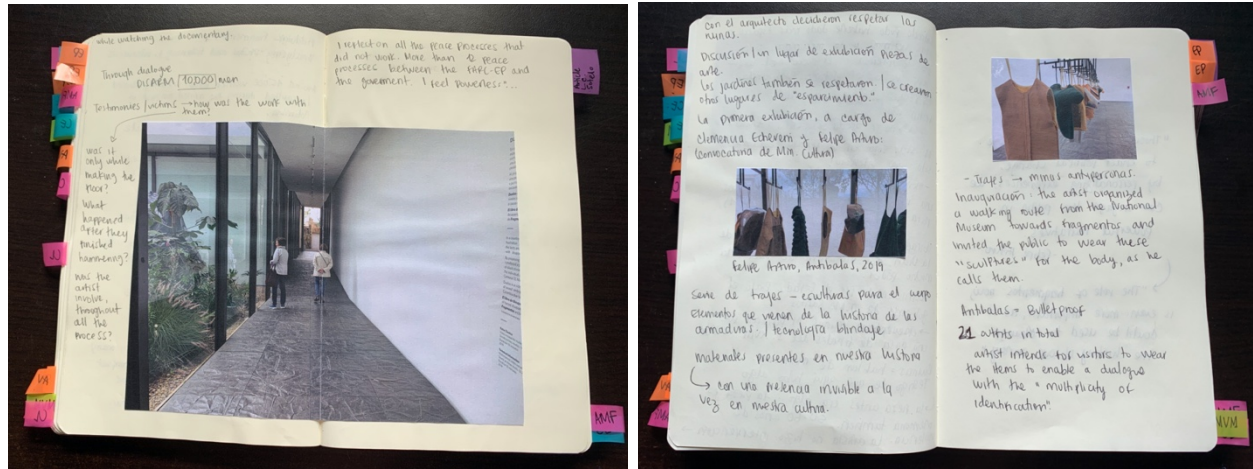 while watching the documentary.
Through dialogue
DISARM 10,000 men
Testimonies / victims → how was the work with
them?
was it
only while
making the
floor?
What
happened
after they
finished
hammering?
was the
artist
involve,
throughout
all the
process?
I reflect on all the peace processes that
did not work. More than 12 peace
processes between the FARC-EP and
the government. I feel powerless...
AMF
con el arquitecto decidieron respetar las
ruinas.
Discusión / un lugar de exhibición piezas de
arte.
Los jardines también se respetaron / se crearon
otros lugares de "esparcimiento."
La primera exhibición, a cargo de
Clemencia Echeverri y Felipe Arturo:
(convocatoria de Min. Cultura)
Felipe Arturo, Antibalas, 2019
Serie de trajes - esculturas para el cuerpo
Elementos que vienen de la historia de las
armaduras. / tecnología blindaje
materiales presentes en nuestra historia
→ con una presencia invisible a la
vez en nuestra cultura.
- Trajes → minas antipersonas.
Inauguración: the artist organized
a walking route from the National
Museum towards Fragmentos and
invited the public to wear these
"sculptures" for the body, as he
calls them.
Antibalas = Bulletproof
21 outfits in total
artist intends for visitors to wear
the items to enable a dialogue
with the "multiplicity of
identification"
EP
MVM